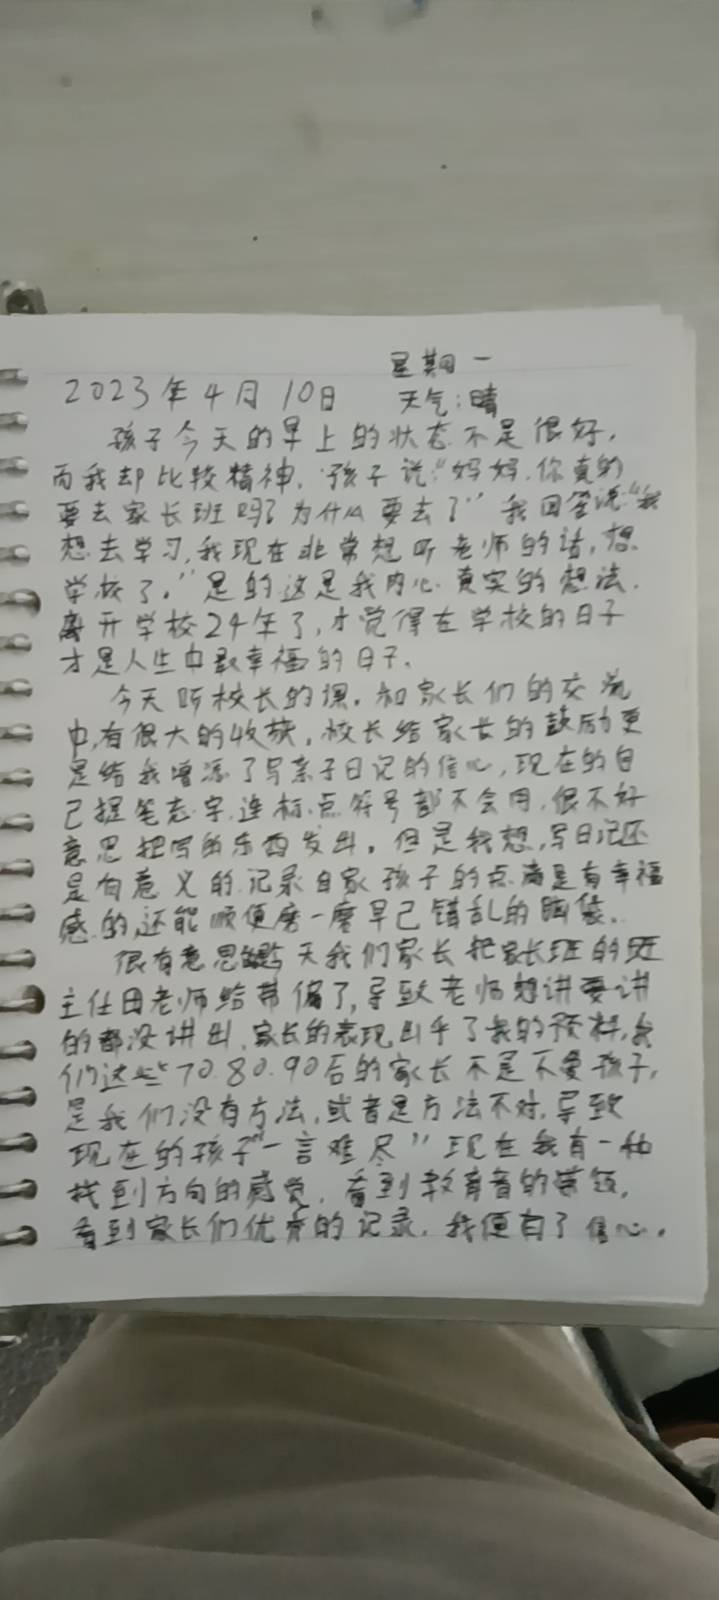 星期一
2023年4月10日 天气:晴
孩子今天的早上的状态不是很好,
而我却比较精神,孩子说:“妈妈,你真的
要去家长班吗?为什么要去了”我回答说:“我
想去学习,我现在非常想听老师的话,想
学校了。”是的这是我内心真实的想法.
离开学校24年了,才觉得在学校的日子
才是人生中最幸福的日子.
今天听校长的课,和家长们的交流
中,有很大的收获,校长给家长的鼓励更
是给我增添了写亲子日记的信心,现在的自
己提笔忘字,连标点符号都不会用,很不好
意思把写的东西发出,但是我想,写日记还
是有意义的,记录自家孩子的点滴是有幸福
感的,还能顺便磨一磨早已锈乱的脑袋.
很有意思 天我们家长把家长班的班
主任田老师给带偏了,导致老师想讲要讲
的都没讲出,家长的表现出乎了我的预料,我
们这些70.80.90后的家长不是不爱孩子,
是我们没有方法,或者是方法不对,导致
现在的孩子“一言难尽”现在我有一种
找到方向的感觉,看到教育者的带领,
看到家长们优秀的记录,我便有了信心.